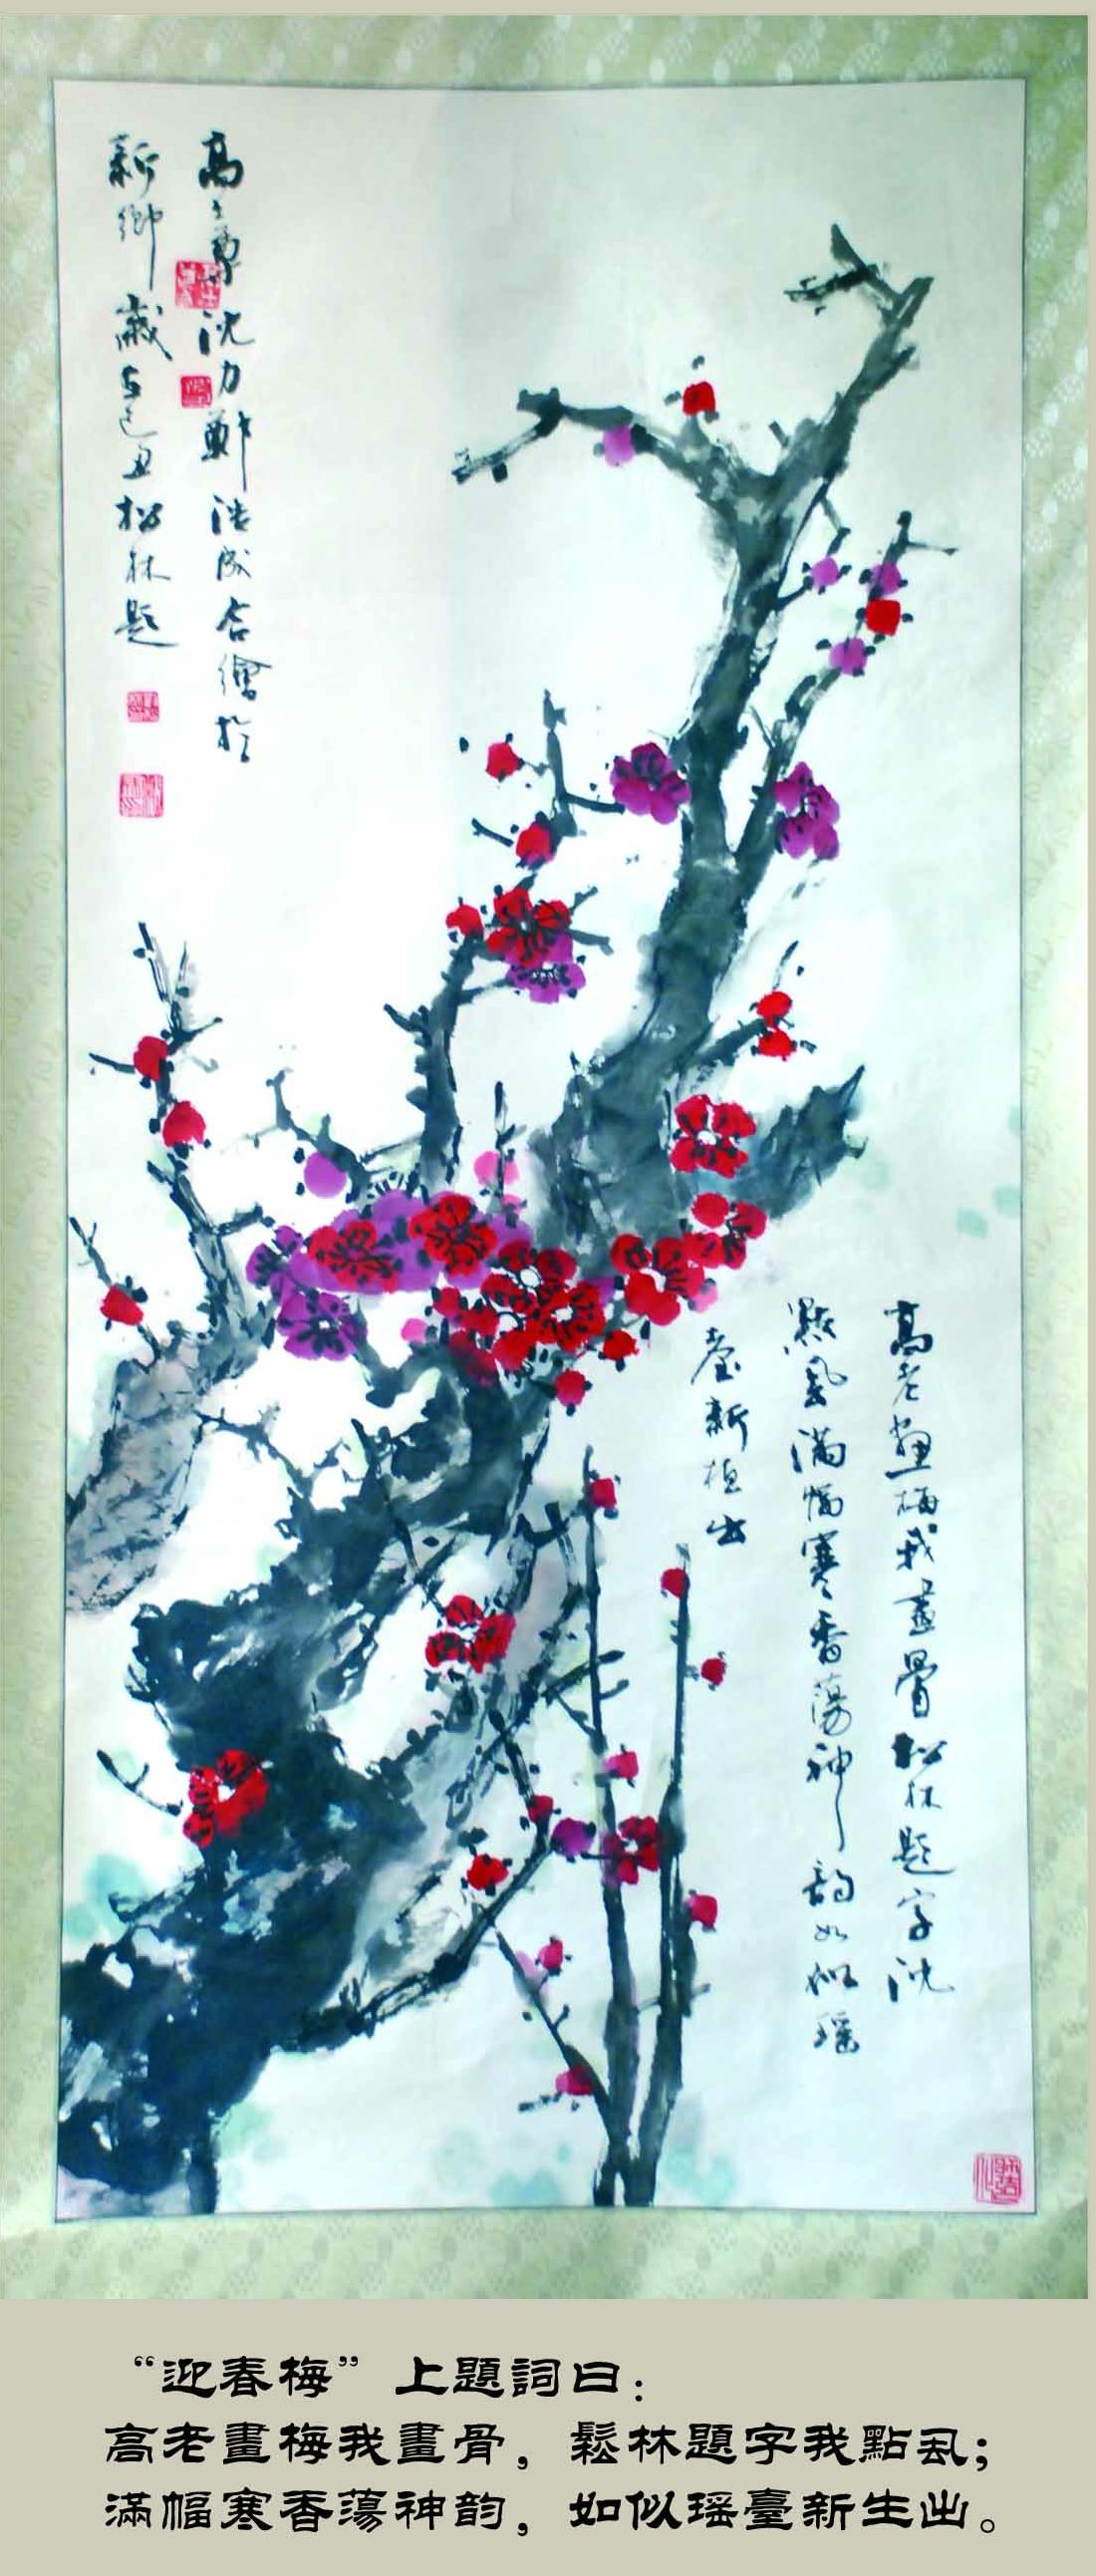 高老畫梅我畫骨松林題字沈
點虱滿幅寒香蕩神韵如似瑶
臺新植出
高士尊沈力鄭浩成合繪於
新鄉歲在己丑松林題
“迎春梅”上題詞曰：
高老畫梅我畫骨，鬆林題字我點虱；
滿幅寒香蕩神韵，如似瑶臺新生出。